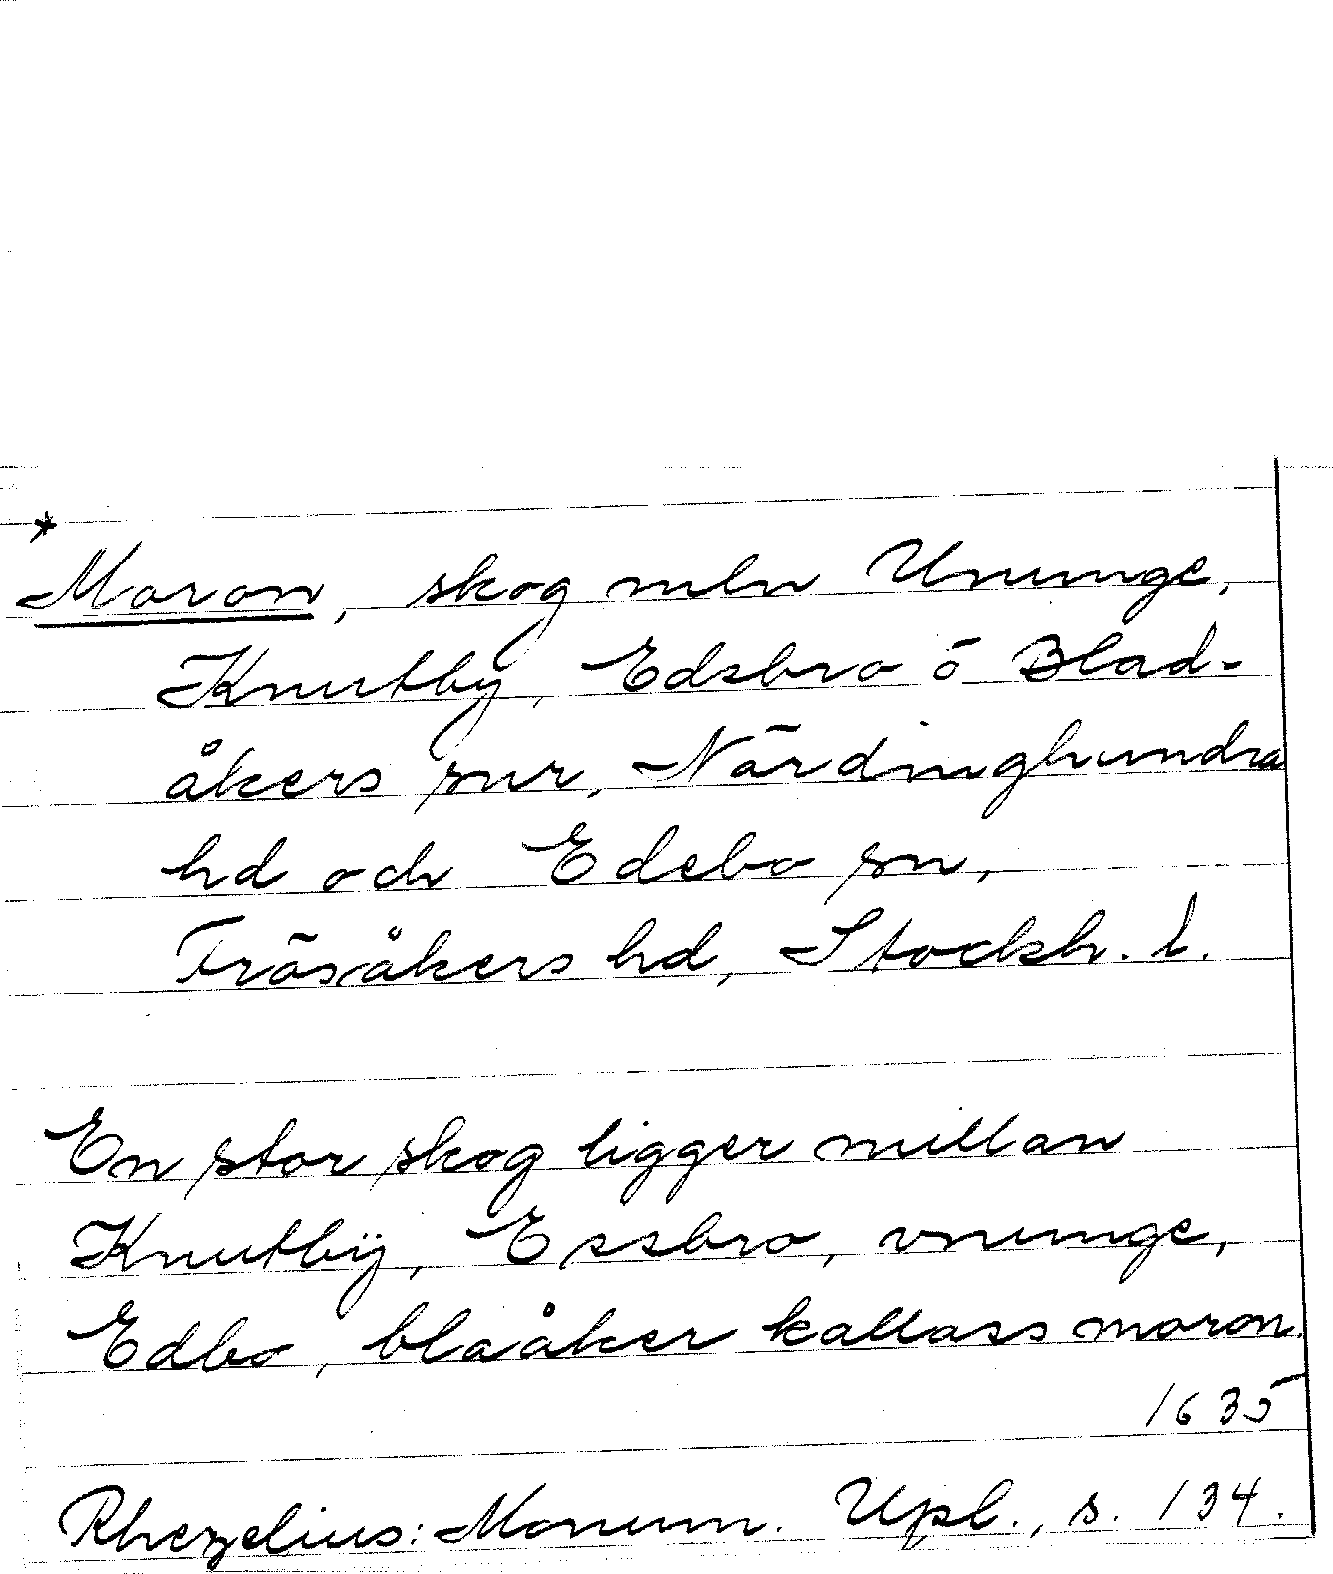 *
Moron, skog mln Ununge,
Knutby, Edsbro ö Blad-
åkers snr, Närdinghundra
hd och Edebo sn,
Frösåkers hd, Stockh. l.
En stor skog ligger millan
Knutbÿ, Essbro, vnunge,
Edbo, blaåker kallass moron.
1635
Rhezelius: Monum. Upl., s. 134.